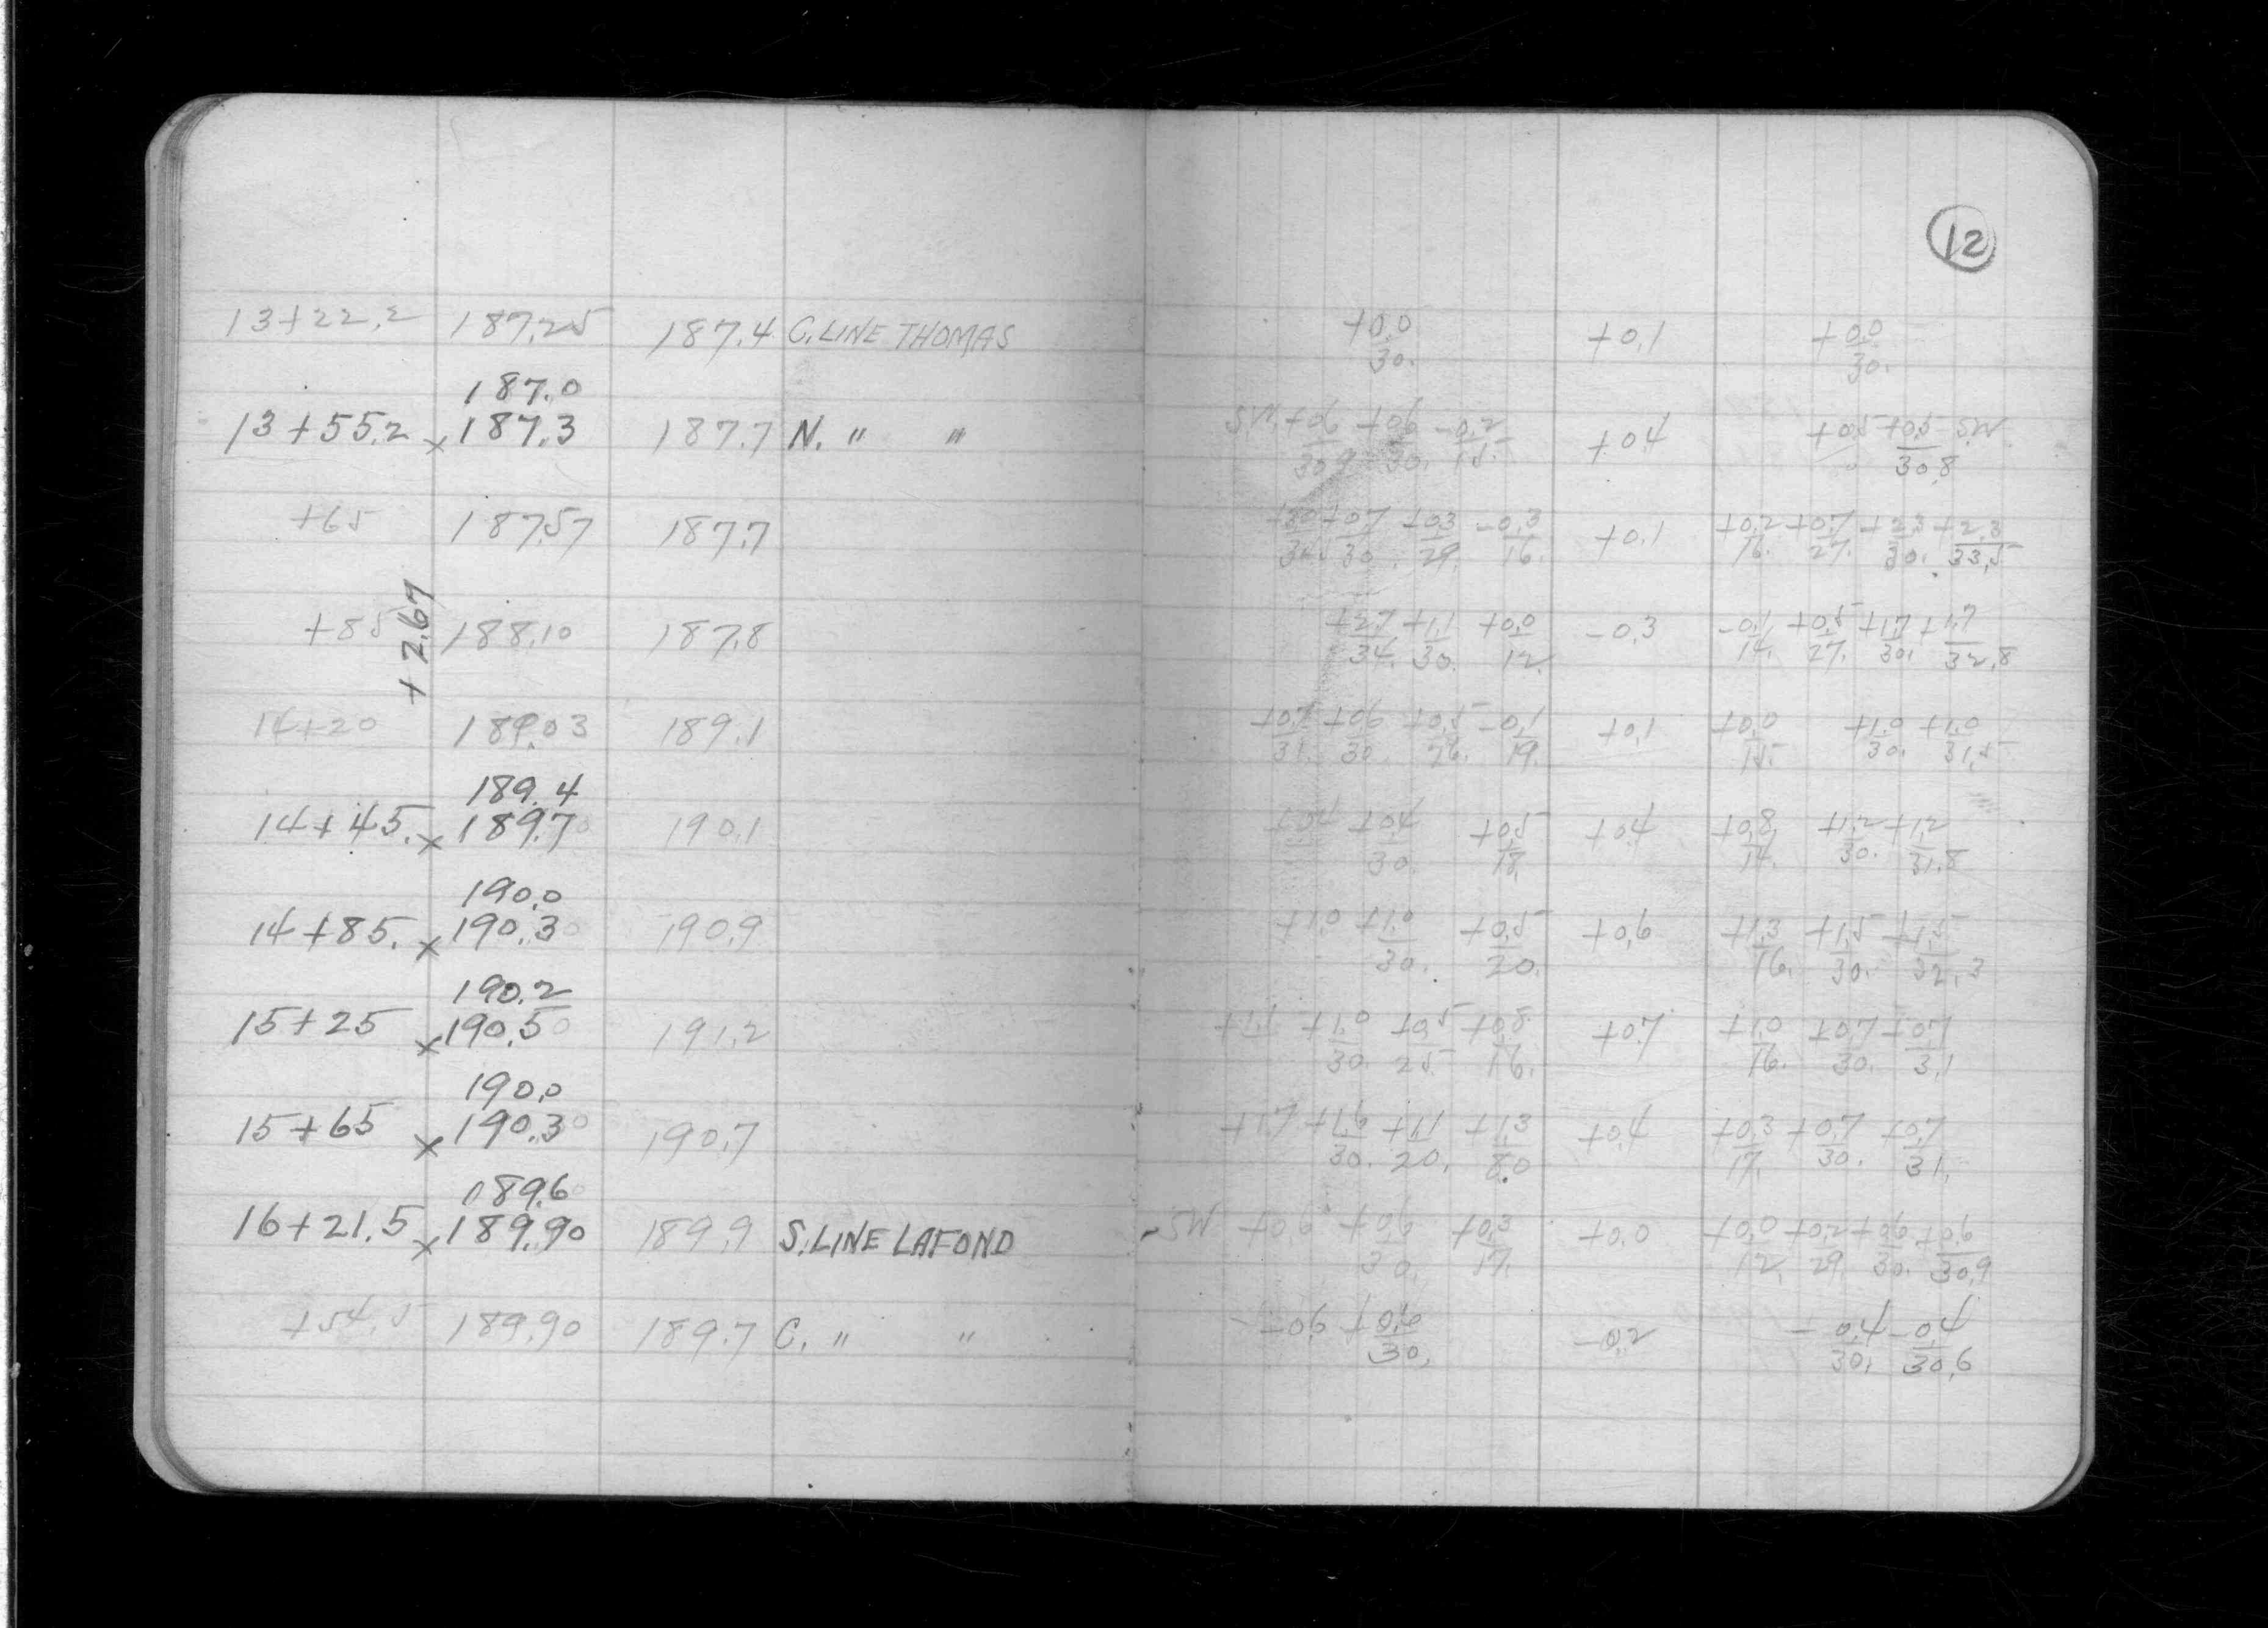 12
13+22.2 187.25 187.4 C. LINE THOMAS +0.0 +0.1 +0.0
30. 30.
187.0
13+55.2 x 187.3 187.7 N. " " SW +0.6 +0.6 -0.2 +0.4 +0.5 +0.5 SW
30.9 30. 15. 30.8
+65 187.57 187.7 +0.7 +0.3 -0.3 +0.1 +0.2 +0.7 +2.3 +2.3
30. 29. 16. 16. 27. 30. 33.5
+2.67
+85 188.10 187.8 +2.7 +1.1 +0.0 -0.3 -0.1 +0.5 +1.7 +1.7
34. 30. 12. 14. 27. 30. 32.8
14+20 189.03 189.1 +0.7 +0.6 +0.5 -0.1 +0.1 +0.0 +1.0 +1.0
31. 30. 26. 19. 15. 30. 31.5
189.4
14+45. x 189.70 190.1 +0.4 +0.4 +0.5 +0.4 +0.8 +1.2 +1.2
30. 18. 14. 30. 31.8
190.0
14+85. x 190.30 190.9 +1.0 +1.0 +0.5 +0.6 +1.3 +1.5 +1.5
30. 20. 16. 30. 32.3
190.2
15+25 x 190.50 191.2 +1.1 +1.0 +0.5 +0.8 +0.7 +1.0 +0.7 +0.7
30. 25 16. 16. 30. 31
190.0
15+65 x 190.30 190.7 +1.7 +1.6 +1.1 +1.3 +0.4 +0.3 +0.7 +0.7
30. 20. 8.0 17. 30. 31.
189.60
16+21.5 x 189.90 189.9 S. LINE LAFOND SW +0.6 +0.6 +0.3 +0.0 +0.0 +0.2 +0.6 +0.6
30. 17. 12. 29. 30. 30.9
+54.5 189.90 189.7 C. " " -0.6 +0.6 -0.2 -0.4 -0.4
30. 30. 30.6